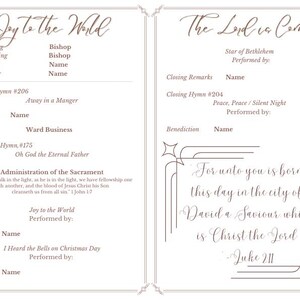 Joy to the World
ing Bishop
ng Bishop
Name
Name
Hymn #206
Away in a Manger
Name
Ward Business
Hymn,#175
Oh God the Eternal Father
Administration of the Sacrament
alk in the light, as he is in the light, we have fellowship one
th another, and the blood of Jesus Christ his Son
cleanseth us from all sin." 1 John 1:7
Joy to the World
Performed by:
Name
I Heard the Bells on Christmas Day
Performed by:
Name
The Lord is Com
Star of Bethlehem
Performed by:
Closing Remarks Name
Closing Hymn #204
Peace, Peace / Silent Night
Performed by:
Benediction Name
For unto you is born
this day in the city of
David a Saviour wh
is Christ the Lord
Luke 2:11